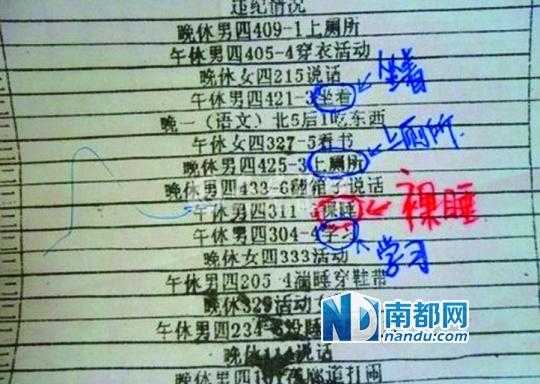 违纪情况
晚休男四409-1上厕所
午休男四405-4穿衣活动
晚休女四215说话
午休男四421-3坐着
坐着
晚一(语文)北5后1吃东西
午休女四327-5看书
上厕所.
晚休男四425-3上厕所
晚休男四433-6翻箱子说话
午休男四311-3裸睡
裸睡
午休男四304-4学习
学习
晚休女四333活动
午休男四205-4湍睡穿鞋带
晚休329活动
午休男四234
睡
晚休
说话
晚休男四
道打闹
南都网
nandu.com